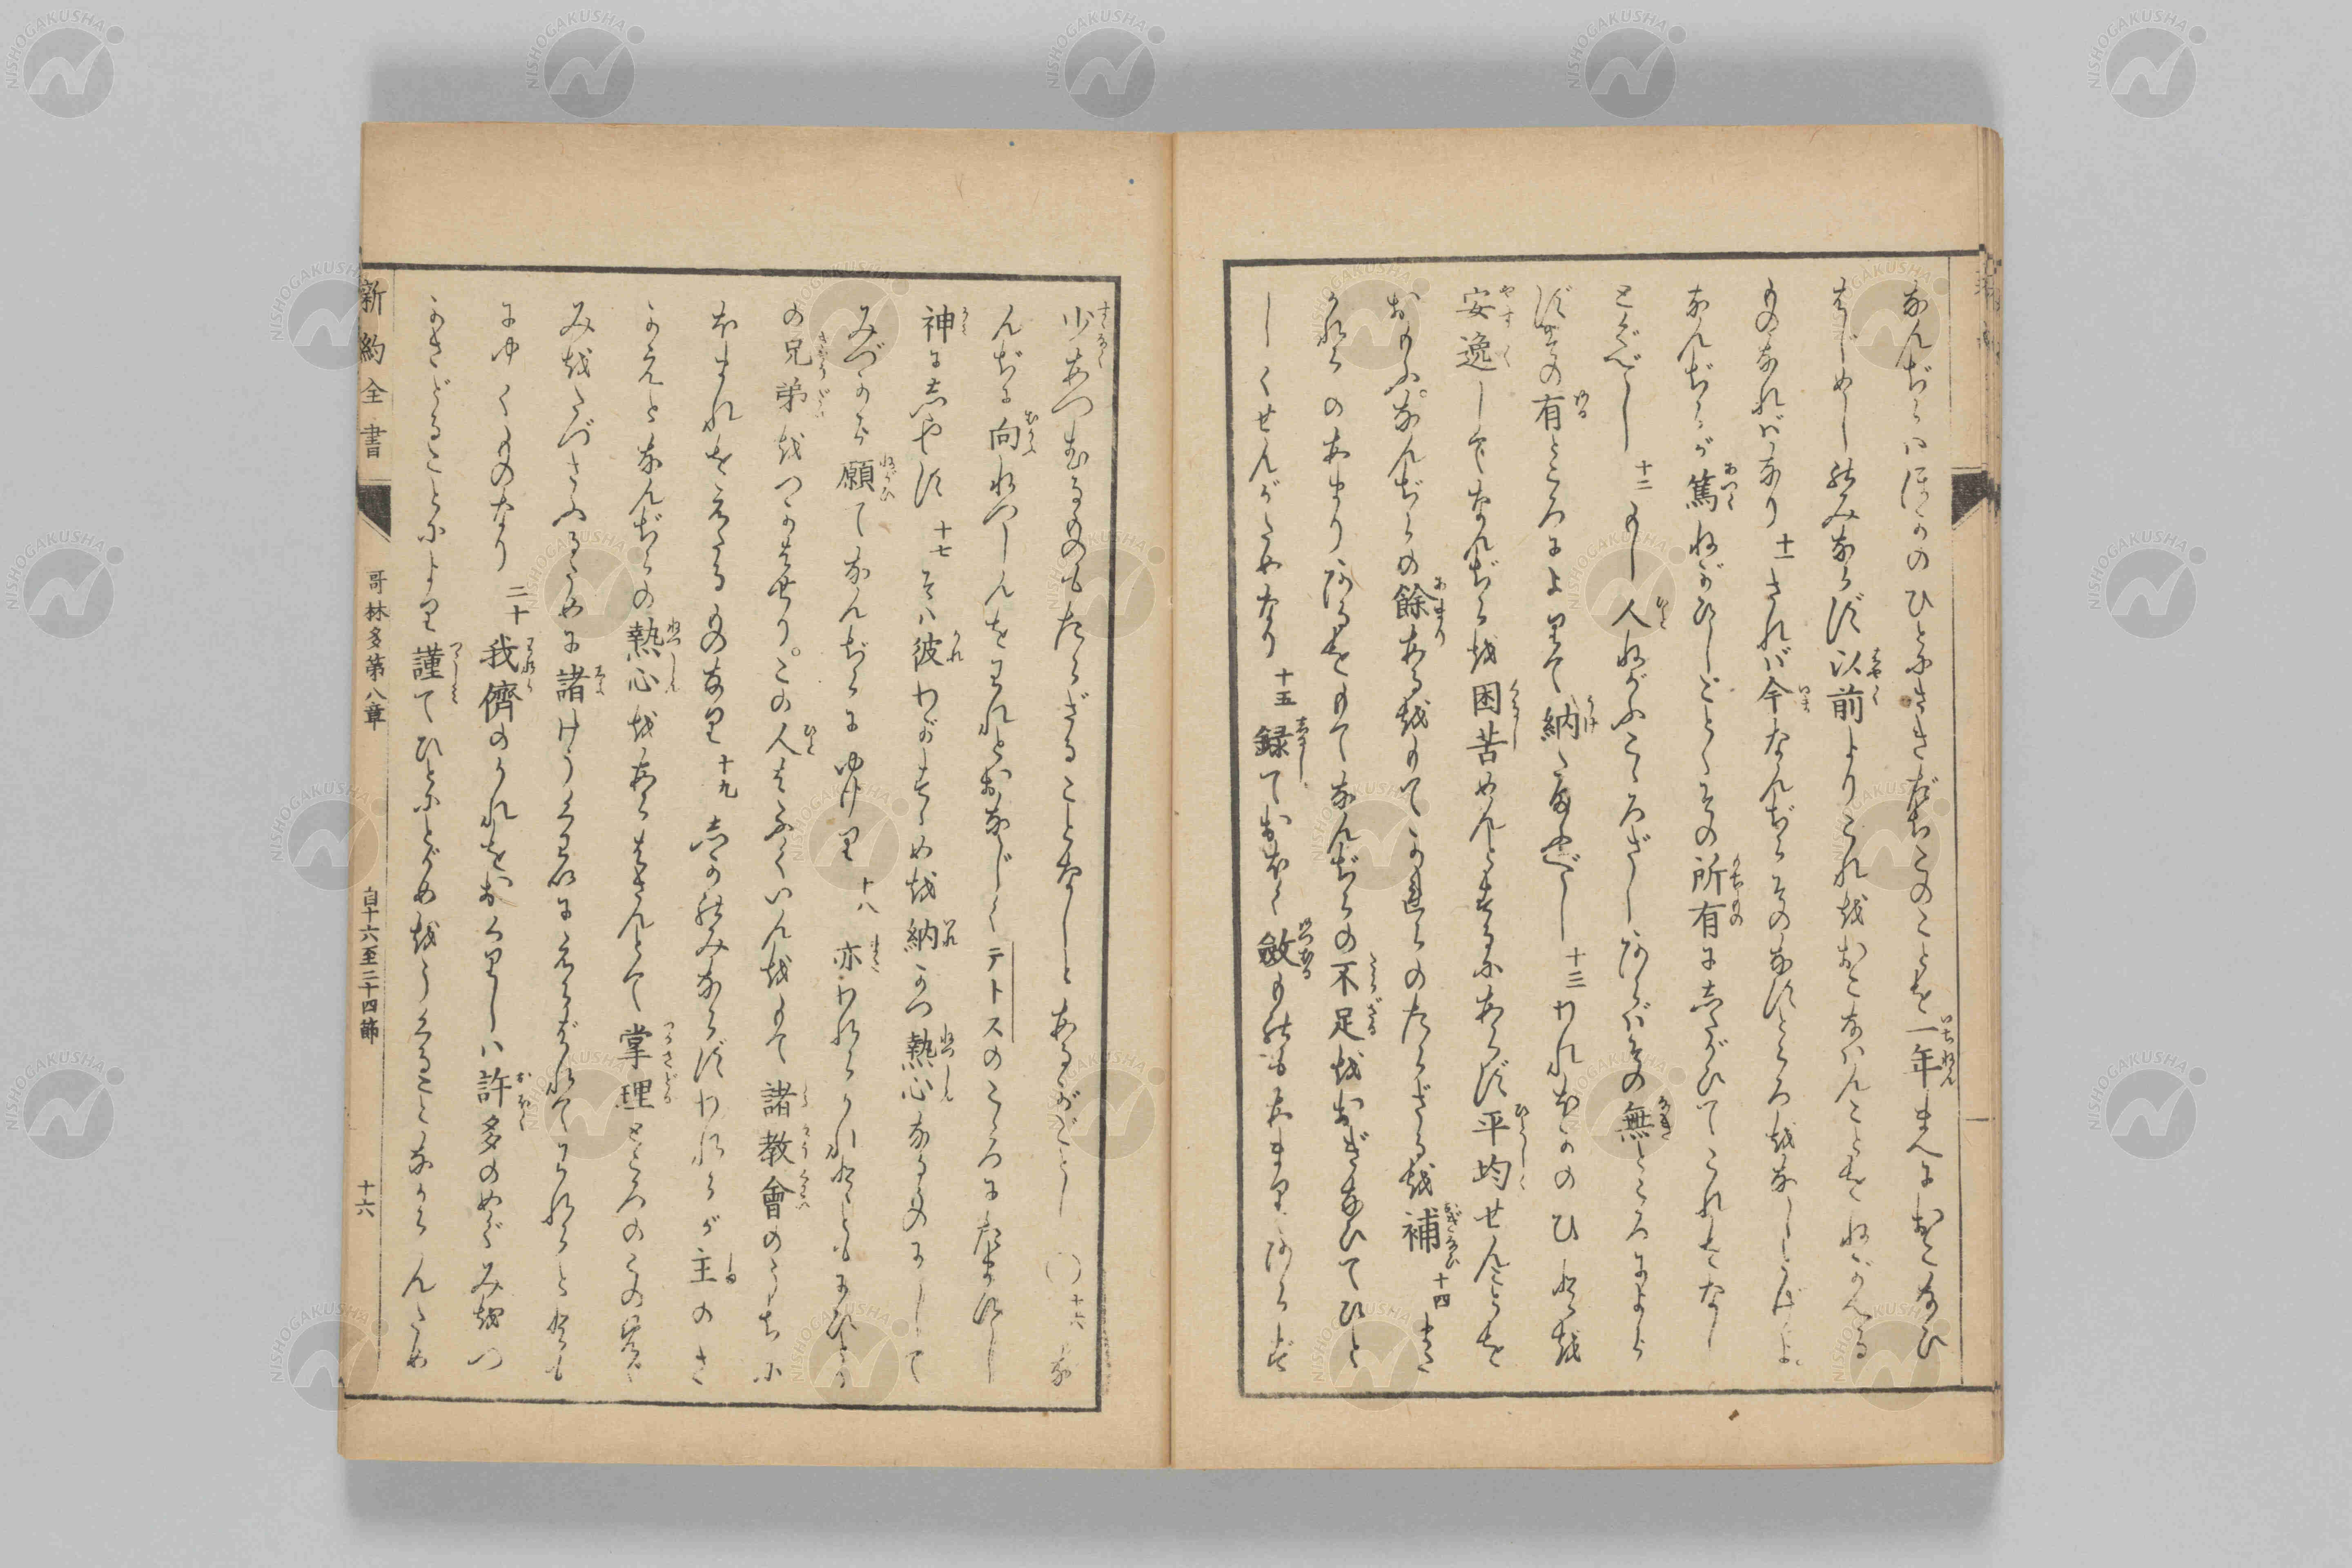 なんぢらハほかのひとにさきだちこのことを一年まへにおこなひ
はじめし耳みならず以前よりこれ越おこなはんことをねがへる
ものなれバなり 十一 されバ今なんぢらそのなすところ越なしとげよ
なんぢらが篤ねがひしごとくその所有にしたがひてこれをなし
とぐべし 十二 もし人ねがふこゝろざしあらバその無ところによら
ずその有ところによりて納らるべし 十三 われほかのひとを
安逸してなんぢらを困苦めんとするにあらず平均せんことを
おもふ。なんぢらの餘あるをもてかれらのたらざるを補 十四 また
かれらのあまりあるをもてなんぢらの不足をおぎなひてひと
しくせんがためなり 十五 録ておほく斂ものもあまりあらず
少あつむるものもたらざることなしとあるがごとし 〇十六 な
んぢに向ねつしんをわれとおなじくテトスのこゝろにたまひし
神にしやす 十七 そハ彼わがすゝめを納かつ熱心なるものにして
みづから願てなんぢらにゆけり 十八 亦われらかれとともにひとり
の兄弟をつかはせり。この人はふくいんをもて諸教會のうちに
ほまれをえたるものなり 十九 しかのみならずわれらが主のさ
かえとなんぢらの熱心をあらはさんとて掌理ところのこの
みをたづさふるために諸けうくわいにえらばれてわれらとともに
にゆくものなり 二十 我儕のかれをおくりしハ許多のめぐみをつ
かさどることによりて謹てひとにとがめをうくることなからんため
新約全書 哥林多第八章 自十六至二十四節 十六
NISHOGAKUSHA